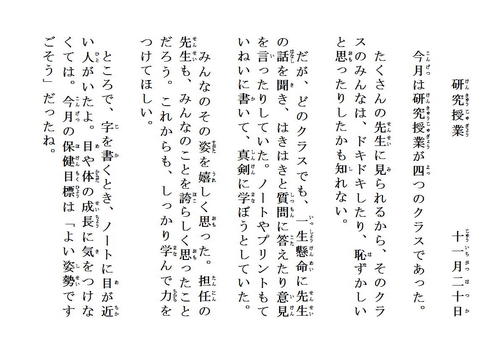 研究授業　十一月二十日
今月は研究授業が四つのクラスであった。
たくさんの先生に見られるから、そのクラ
スのみんなは、ドキドキしたり、恥ずかしい
と思ったりしたかも知れない。
だが、どのクラスでも、一生懸命に先生
の話を聞き、はきはきと質問に答えたり意見
を言ったりしていた。ノートやプリントもて
いねいに書いて、真剣に学ぼうとしていた。
みんなのその姿を嬉しく思った。担任の
先生も、みんなのことを誇らしく思ったこと
だろう。これからも、しっかり学んで力を
つけてほしい。
ところで、字を書くとき、ノートに目が近
い人がいたよ。目や体の成長に気をつけな
くては。今月の保健目標は「よい姿勢です
ごそう」だったね。